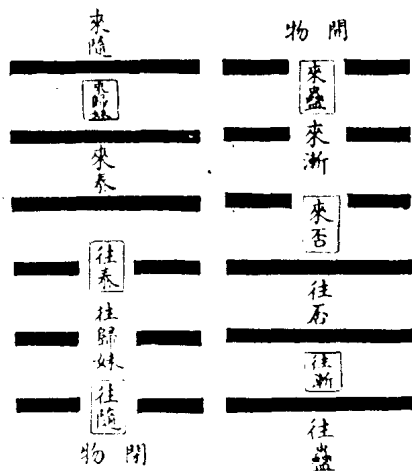 開物
來蠱
來漸
來否
往否
往漸
往蠱
來隨
來歸妹
來泰
往泰
往歸妹
往隨
開物